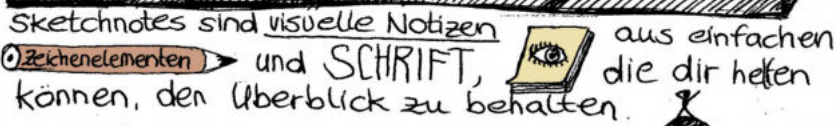 Sketchnotes sind visuelle Notizen aus einfachen
Zeichenelementen und SCHRIFT, die dir helfen
können, den Überblick zu behalten.